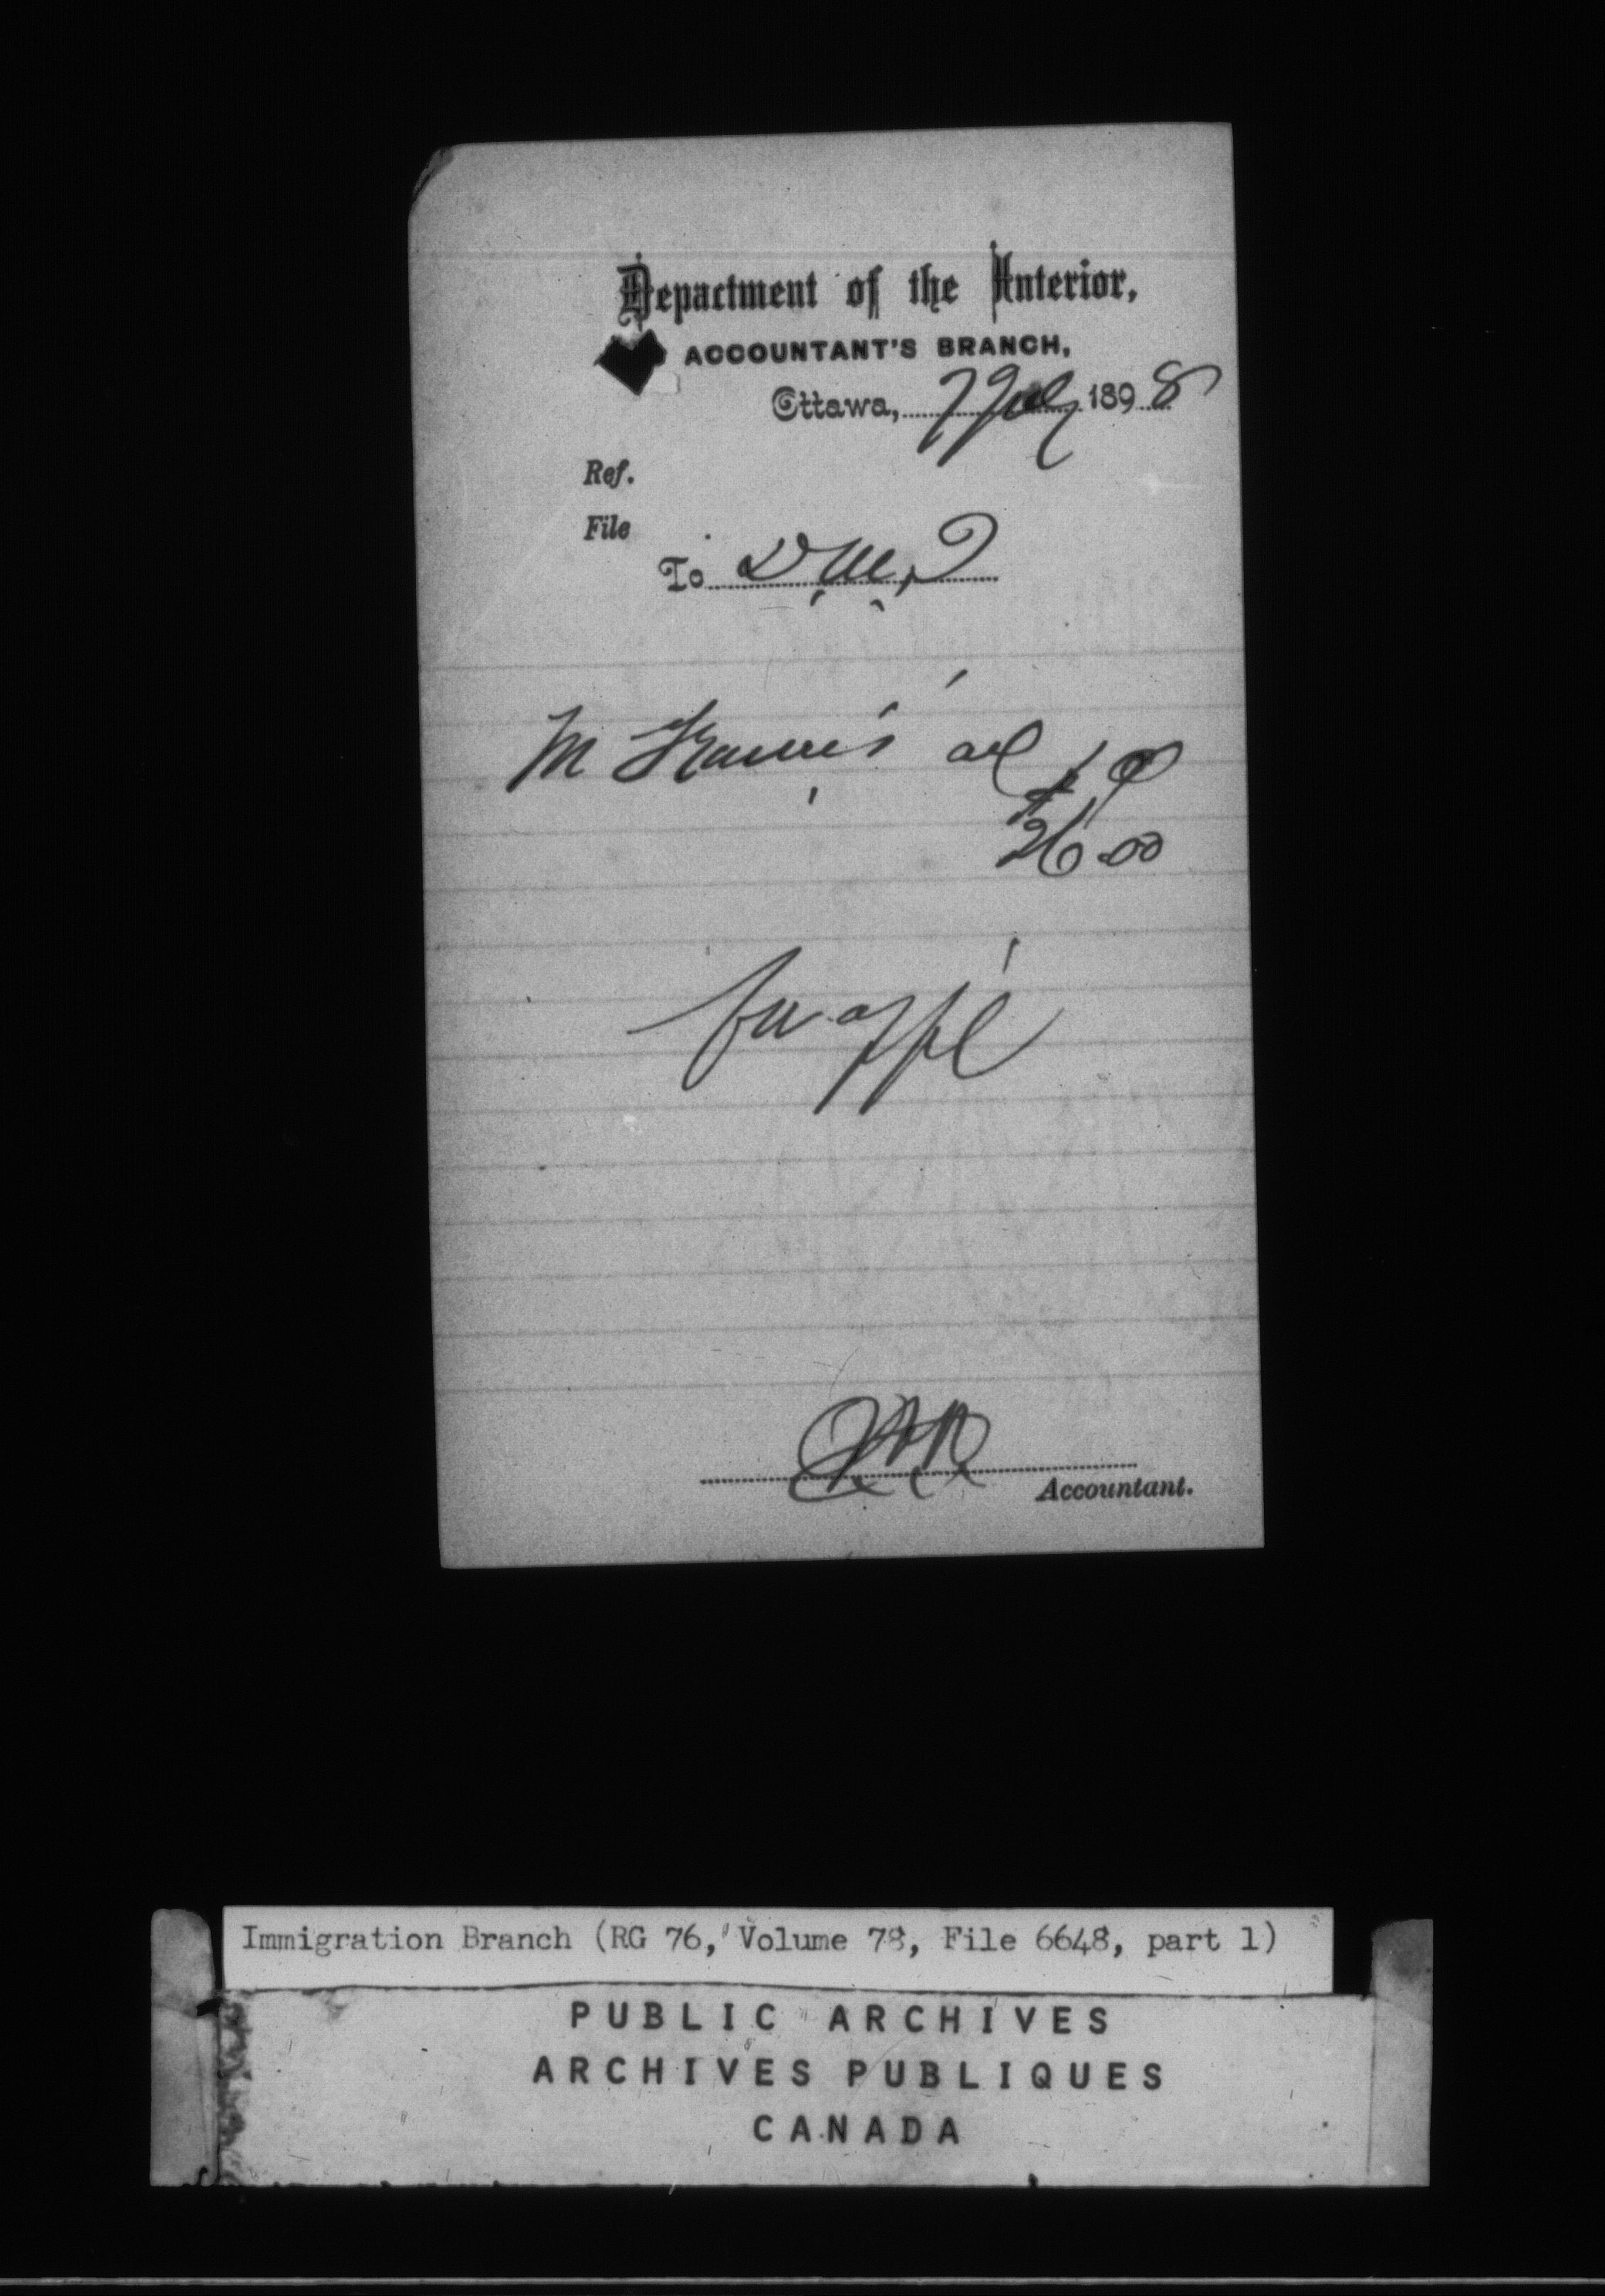 Department of the Interior,
ACCOUNTANT'S BRANCH,
Ottawa, 7 July 1898
Ref.
File
To D.M.I
M
26.00
for
Accountant.
Immigration Branch (RG 76, Volume 78, File 6648, part 1)
PUBLIC ARCHIVES
ARCHIVES PUBLIQUES
CANADA